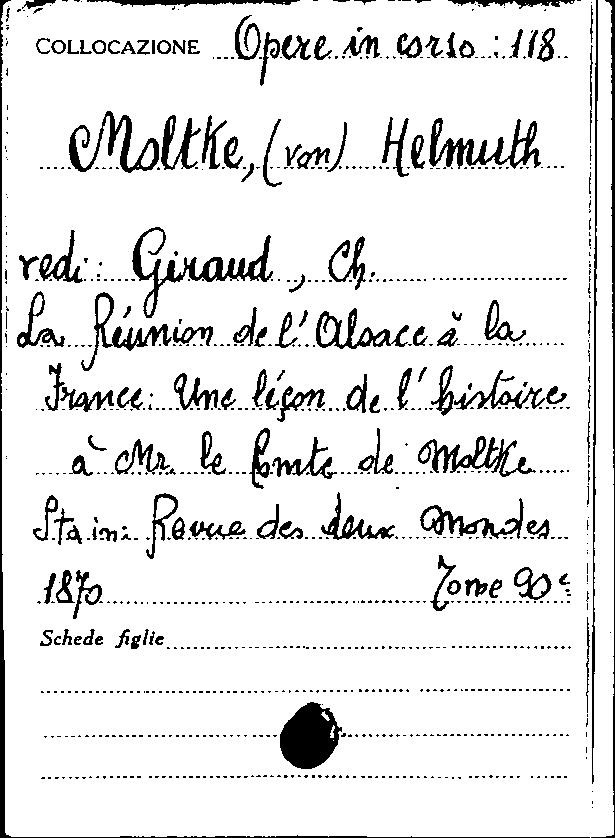 COLLOCAZIONE Opere in corso : 118
Moltke, (von) Helmuth
vedi: Giraud, Ch.
La Réunion de l'Alsace à la
France: Une léçon de l'histoire
à Mr. le Comte de Moltke
Sta in: Revue des deux Mondes
1870 Tome 90e
Schede figlie